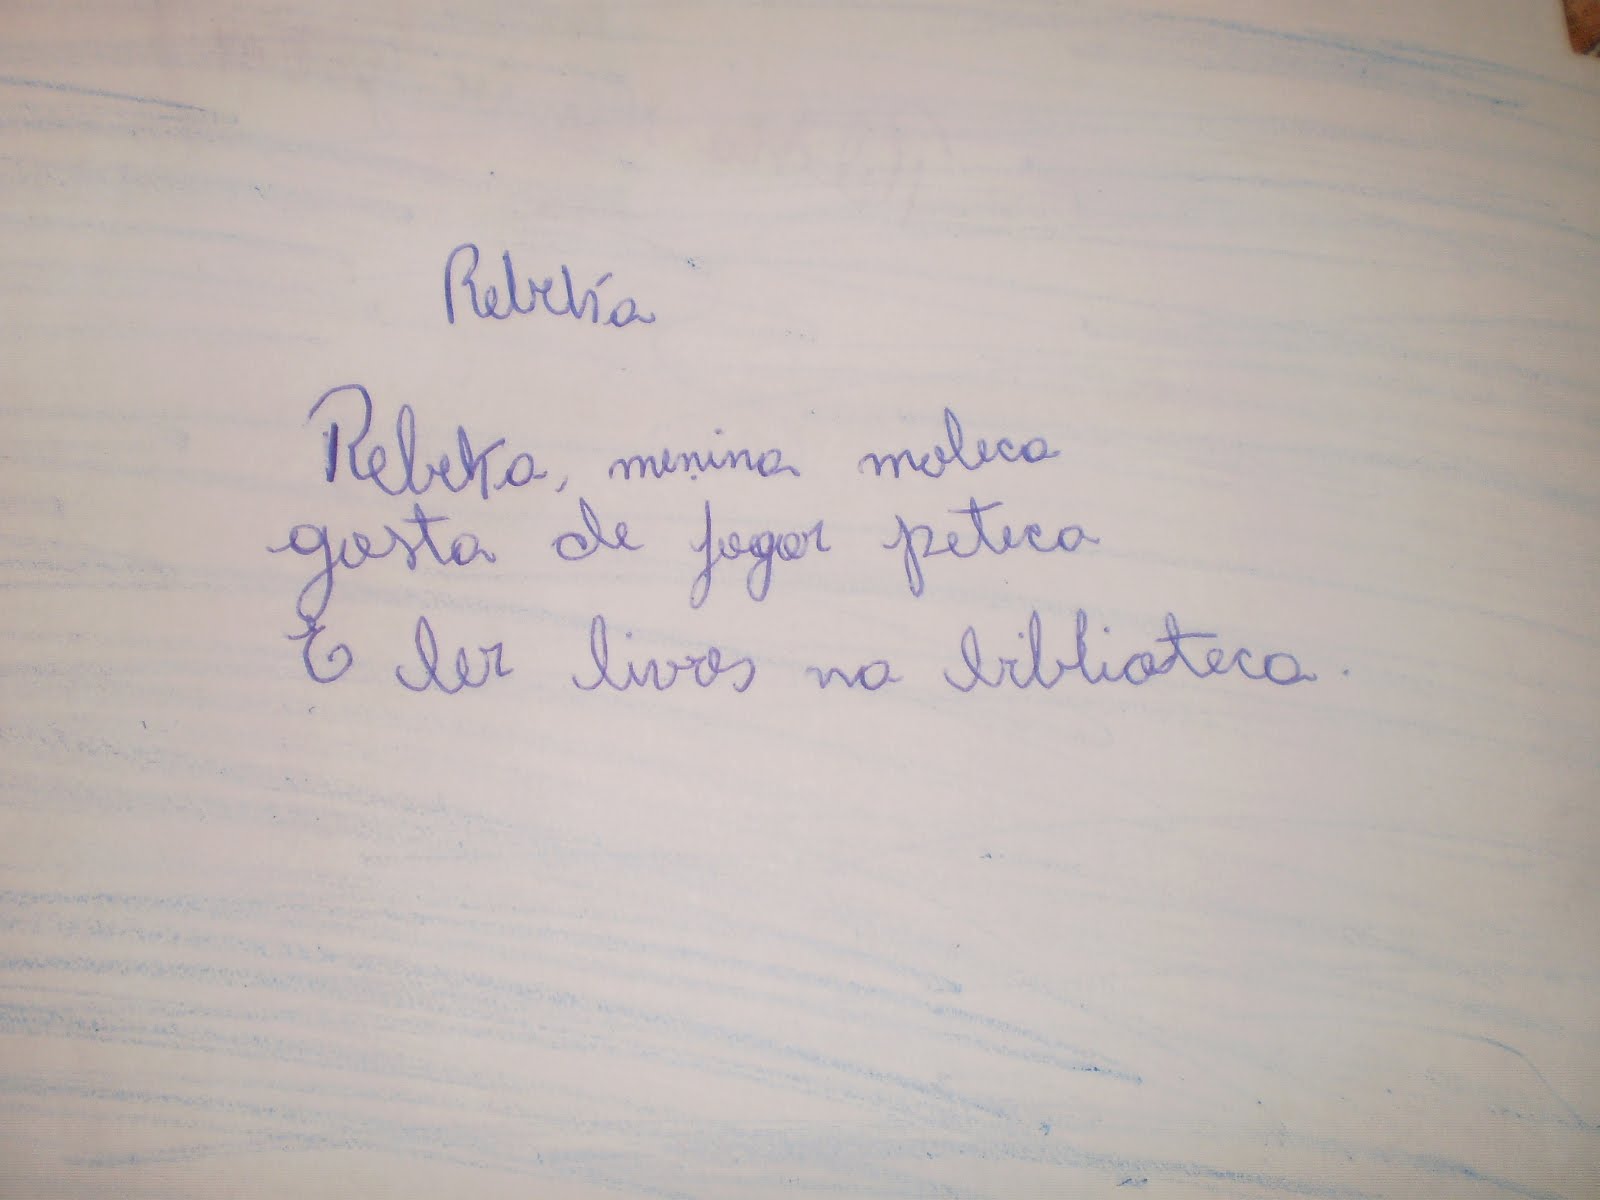 Rebeka
Rebeka, menina moleca
gosta de jogar peteca
E ler livros na biblioteca.